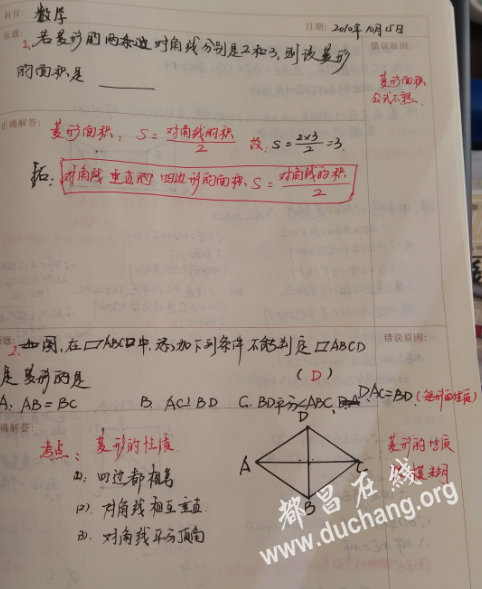 科目: 数学
日期: 2010年10月15日
原题:
错误原因:
1、若菱形的两条对角线分别是2和3,则该菱形
的面积是 ______
菱形面积
公式不熟.
正确解答:
菱形面积: S = 对角线的积/2 故: S = 2×3/2 = 3.
拓: 对角线垂直的四边形的面积 S = 对角线的积/2
题:
错误原因:
2、如图,在▱ABCD中,添加下列条件不能判定▱ABCD
是菱形的是 ( D )
A、AB = BC B. AC⊥BD C. BD平分∠ABC, D、AC=BD (矩形的性质)
确解答:
考点: 菱形的性质
(1). 四边都相等
(2). 对角线相互垂直
(3). 对角线平分顶角
D
A
C
B
菱形的性质
模糊
都昌在线
www.duchang.org